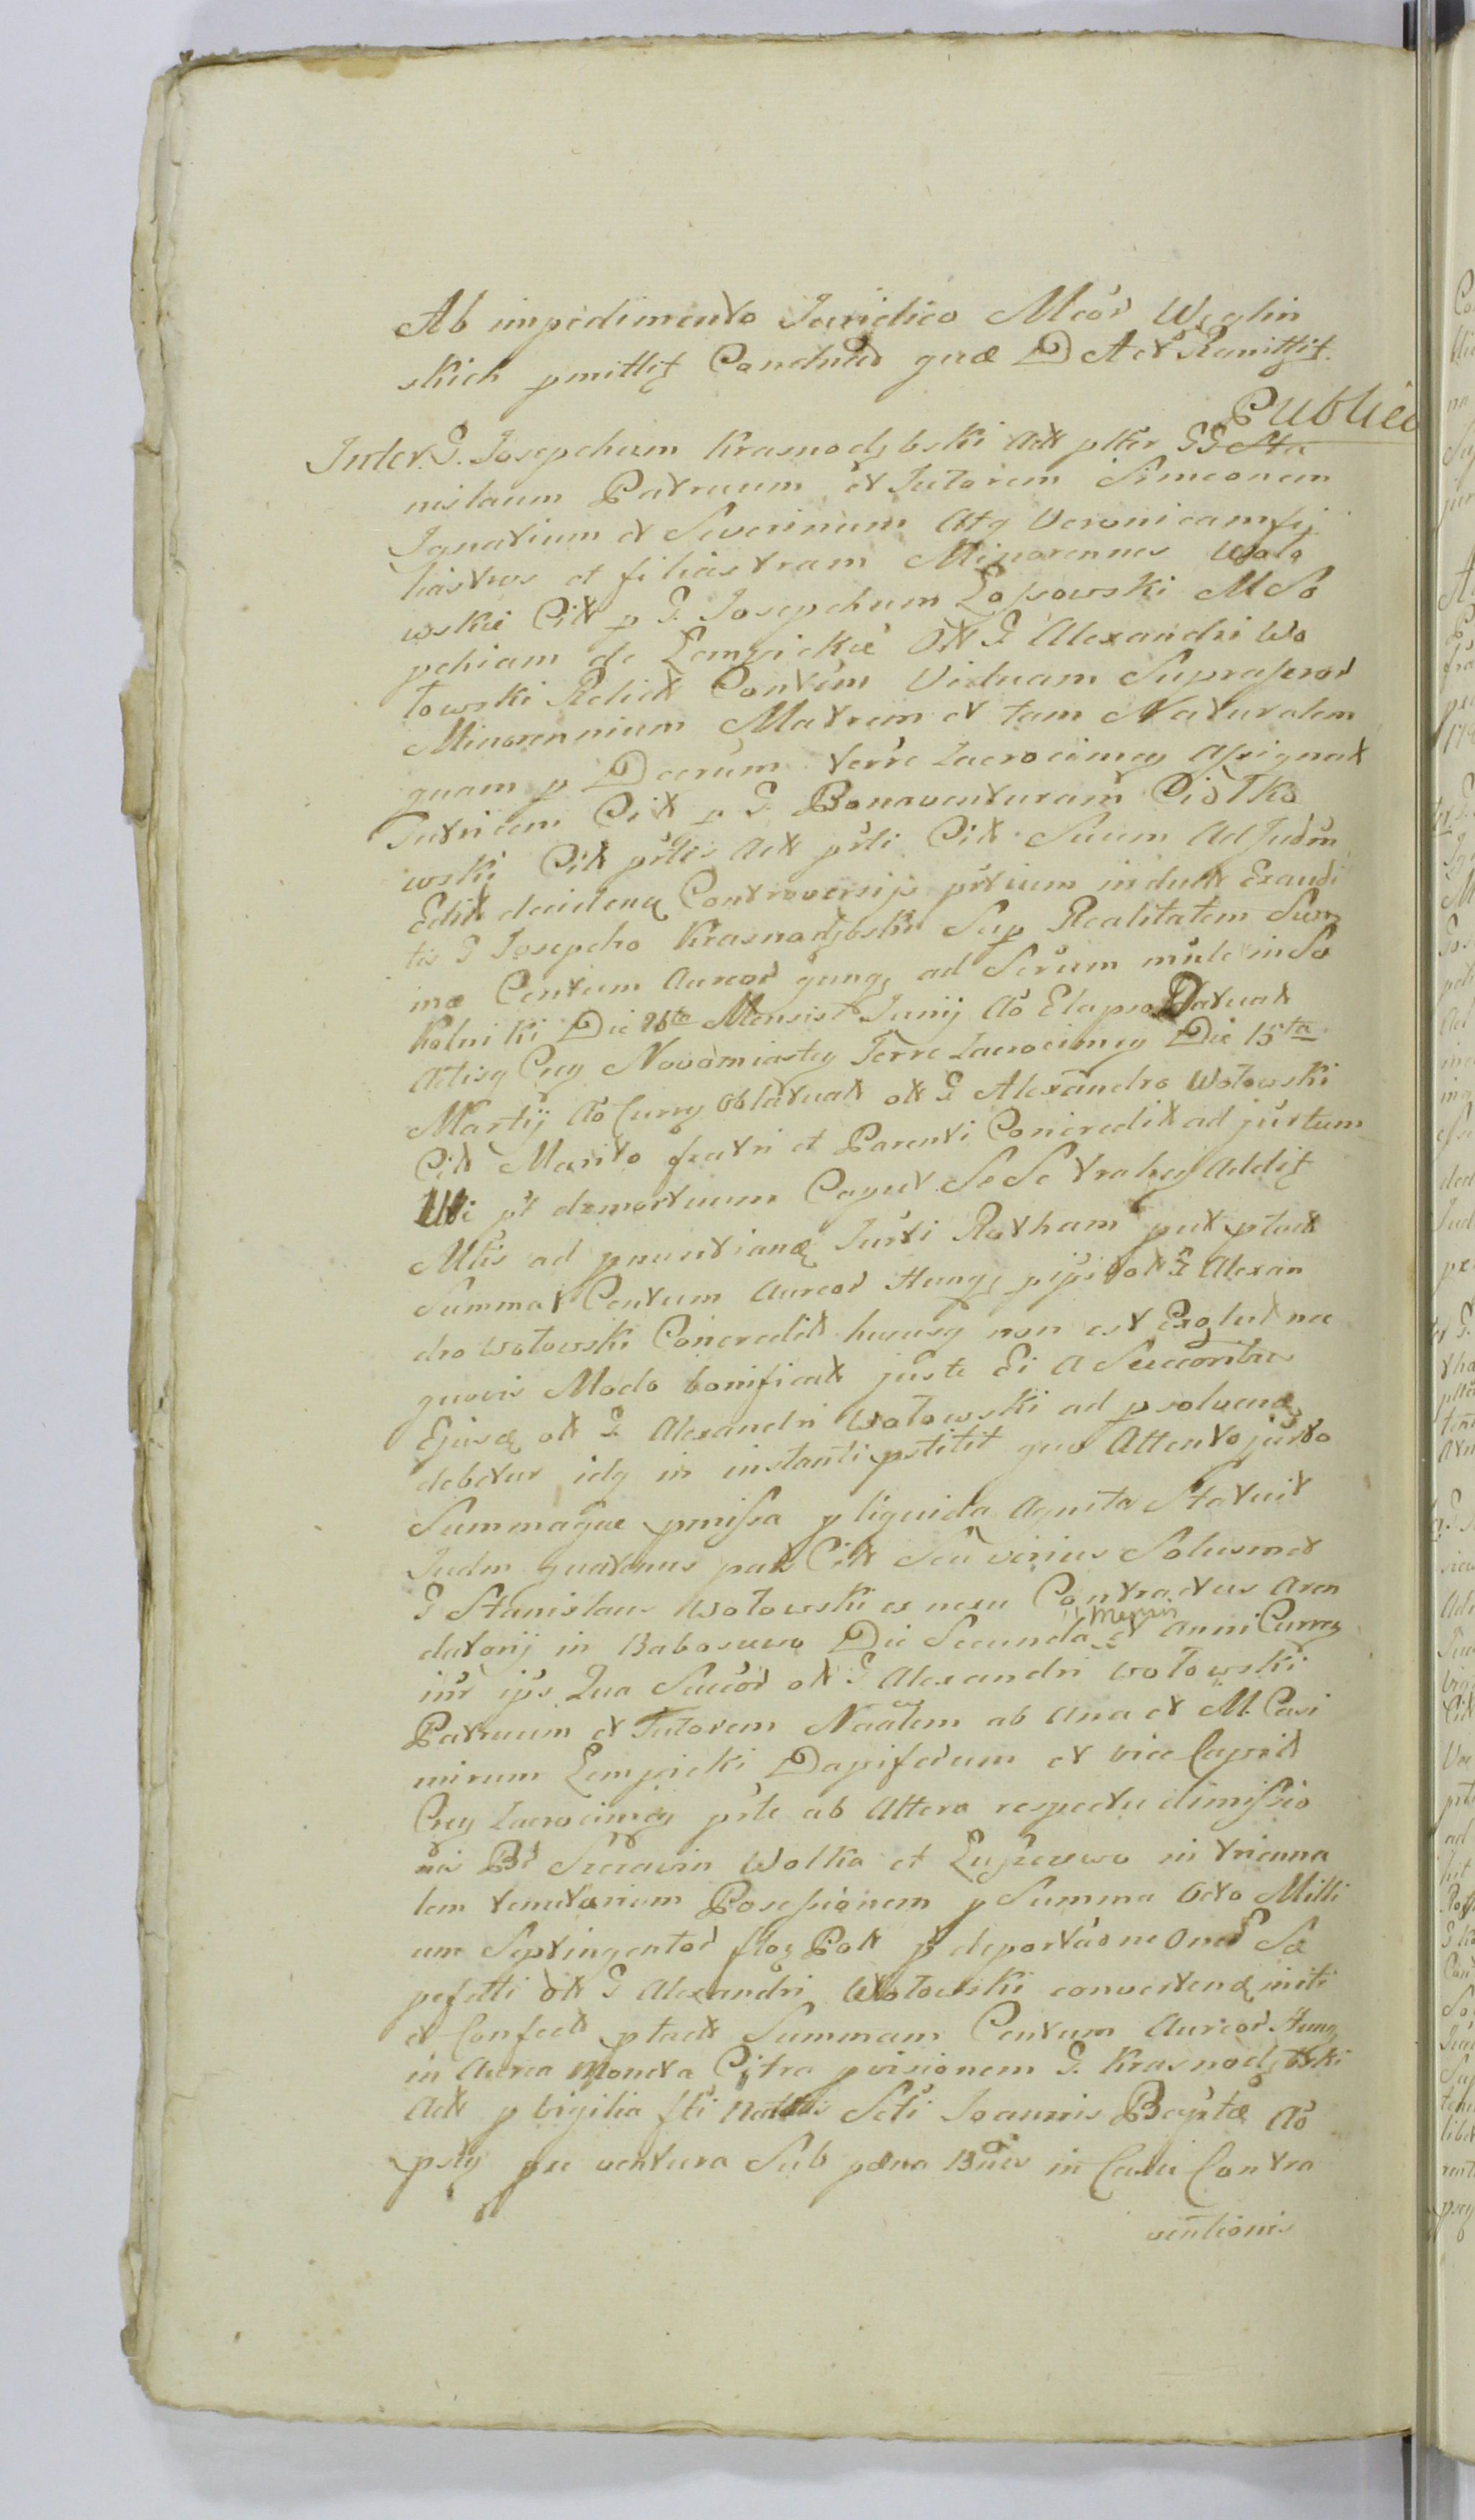 Ab impedimento Juridico Mcor Węglin
skich pmittit Conducto quæ D Act Remittit.
Publico
Inter. G. Josephum Krasnodębski Act pter GG Sta
nislaum Patruum et Tutorem Simeonem
Ignatium et Severinum Atq Veronicam fi
liastros et filiastram Minorennes Woto
wskie Cit p G. Josephum Łossowski M So
phiam de Lempickie Olt G Alexandri Wo
towski Relict Contim Viduam Suprascrod
Minorennium Matrem et tam Naturalem
quam p Decrum terre Zacrocimen Assignat
Tutricem Cit p G. Bonaventuram Ciołko
wski Cit prtis Act prti Cit Suum Ad Judm
Edit decidena Controversijs prtium induct Exaudi
tis G Josepho Krasnodębski Sup Realitatem Sum
mæ Centum Aureor Hung, ad Scrum mnle in So
kolniki Die 26ta Mensis Junij Ao Elapso Datuat
Actisq Cney Novomiasteg Terre Zacrocimey Die 15ta
Martij Ao Curry oblatuat olt G Alexandro Wotowski
Cit Marito fratri et Parenti Concredit ad jurtum
Ubi pt demortuum Caput Se Se trahen Addit
Mtis ad pnuntiana Jurti Rotham put ptact
Summa Centum Aureor Hung, p ips olt G Alexan
dro Wotowski Concredit hucusq non est Exolut nec
quovis Modo bonificat juste Ei A Succoribus
Ejusd olt G Alexandri Wotowski ad psolvend
debetur idq in instanti pstitit quo Attento jurto
Summaque pmissa p liquida Agnita Statuit
Judm quatenus pars Cit Seu verius Solusmet
G Stanislaus Wotowski ex nexu Contractus Aren
datorij in Babosewo Die Secunda Mensis et Anni Curreg
inr ips Qua Succor olt G Alexandri Wotowski
Patruum et Tutorem Naalem ab Una et M. Casi
mirum Lempicki Dapiferum et Vice Capnit
Cney Zacrocimey prte ab Altera respectu dimissio
nis Br Szczawin Wolka et Lussewo in trienna
lem tenutoriam Possessionem p Summa Octo Milli
um Septingentor flor Polt p deportaone Oner Sæ
pefatti olt G Alexandri Wotowski convertend initi
et Confect ptact Summam Centum Aureor Hung
in Aurea Moneta Citra pvisionem G. Krasnodębski
Act p Vigilia fti Natlis Scti Joannis Baptæ Ao
pnty pre ventura Sub pæna Bnis in Casu Contra
ventionis